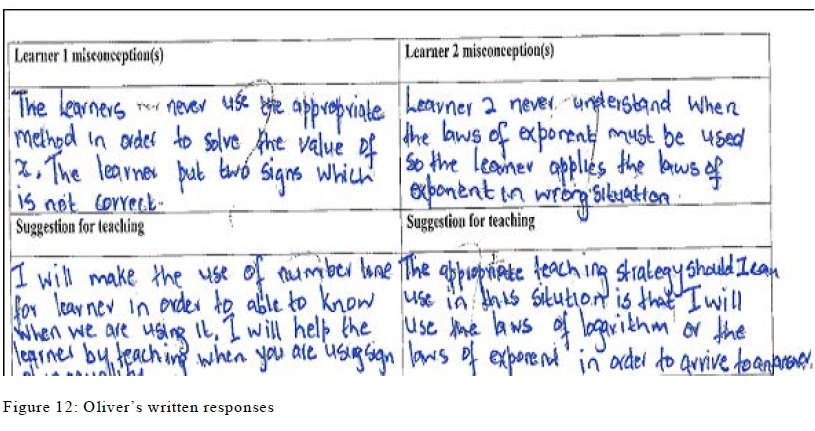 Learner 1 misconception(s)
The learners never use the appropriate
method in order to solve the value of
x. The learner put two signs which
is not correct.
Learner 2 misconception(s)
Learner 2 never understand when
the laws of exponent must be used
so the learner applies the laws of
exponent in wrong situation.
Suggestion for teaching
I will make the use of number line
for learner in order to able to know
when we are using it. I will help the
learner by teaching when you are using sign
Suggestion for teaching
The appropriate teaching strategy should I can
use in this sitution is that I will
use the laws of logarithm or the
laws of exponent in order to arrive to an answer.
Figure 12: Oliver's written responses